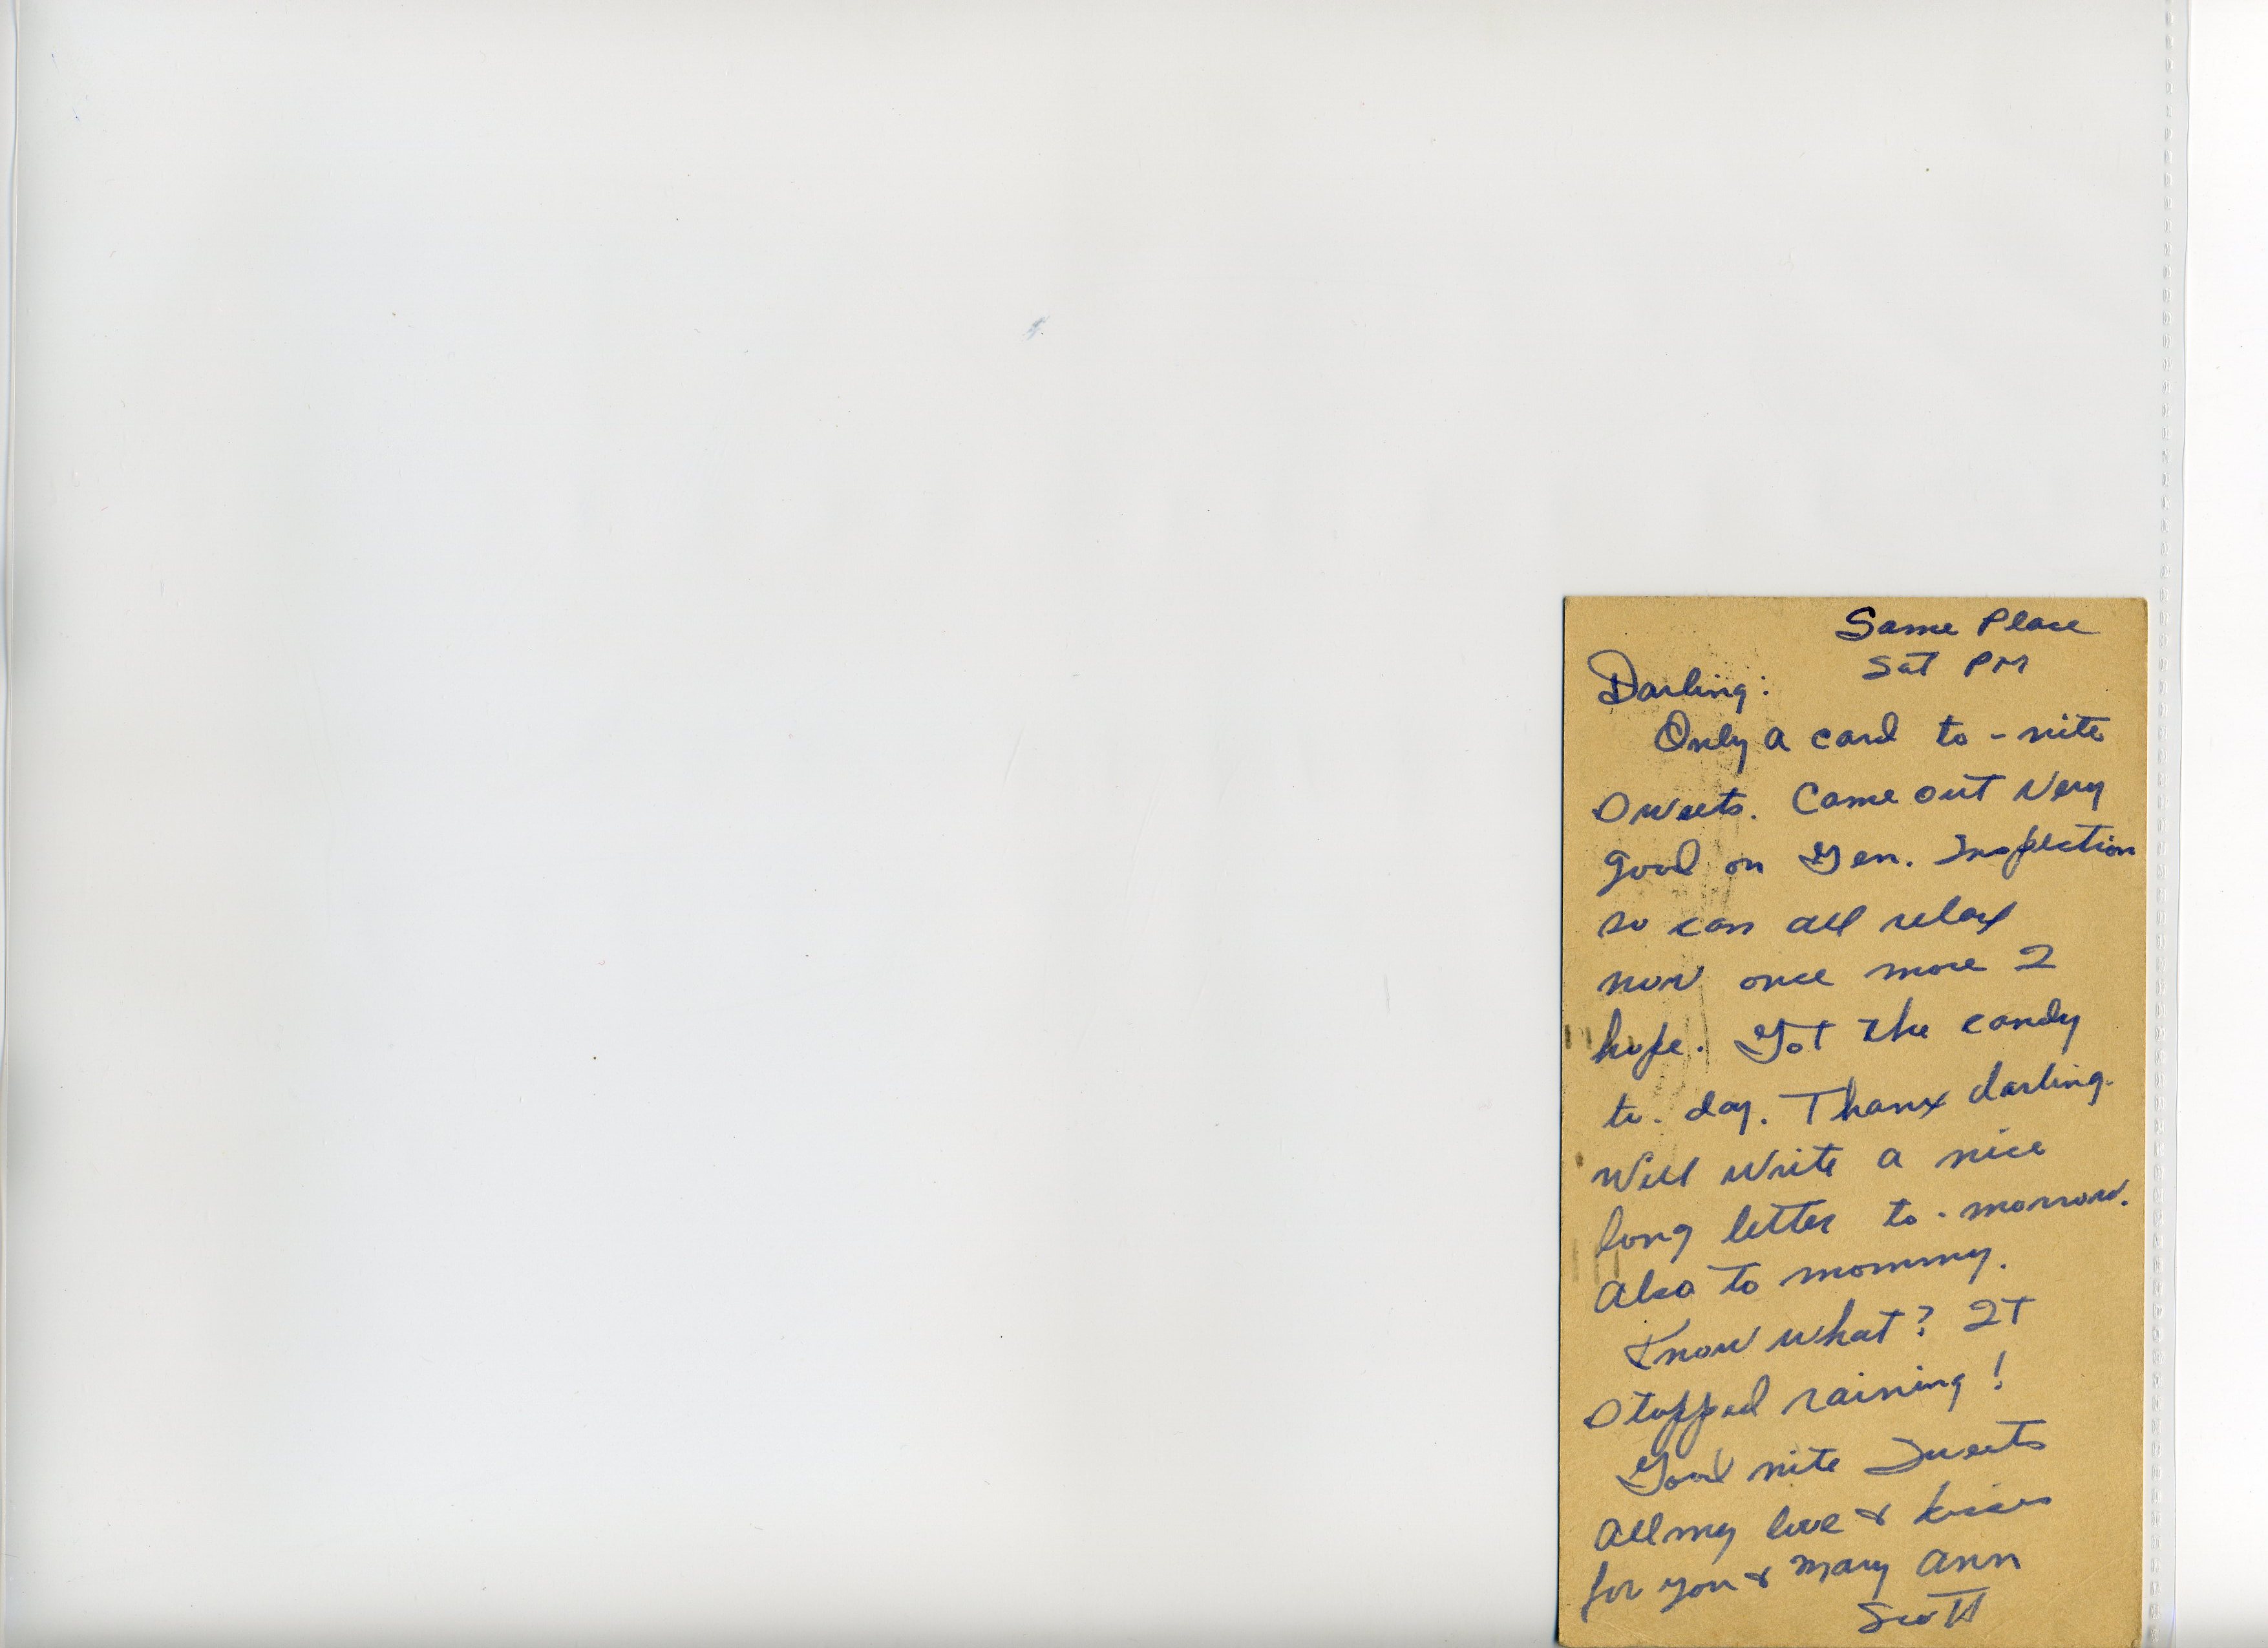 Same Place
Sat PM
Darling:
Only a card to-nite
Sweets. Came out very
good on Gen. Inspection
so can all relax
now once more I
hope. Got the candy
to-day. Thanx darling.
Will write a nice
long letter to-morrow.
Also to mommy.
Know what? It
stopped raining!
Good nite Sweets
All my love & kisses
for you & Mary Ann
Scott